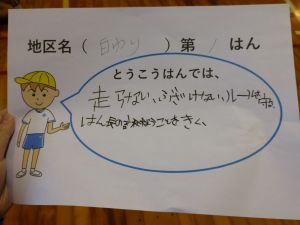 地区名（白ゆり）第1はん
とうこうはんでは、
走らない、ふざけない、ルールを守る、
はん長の
をきく、